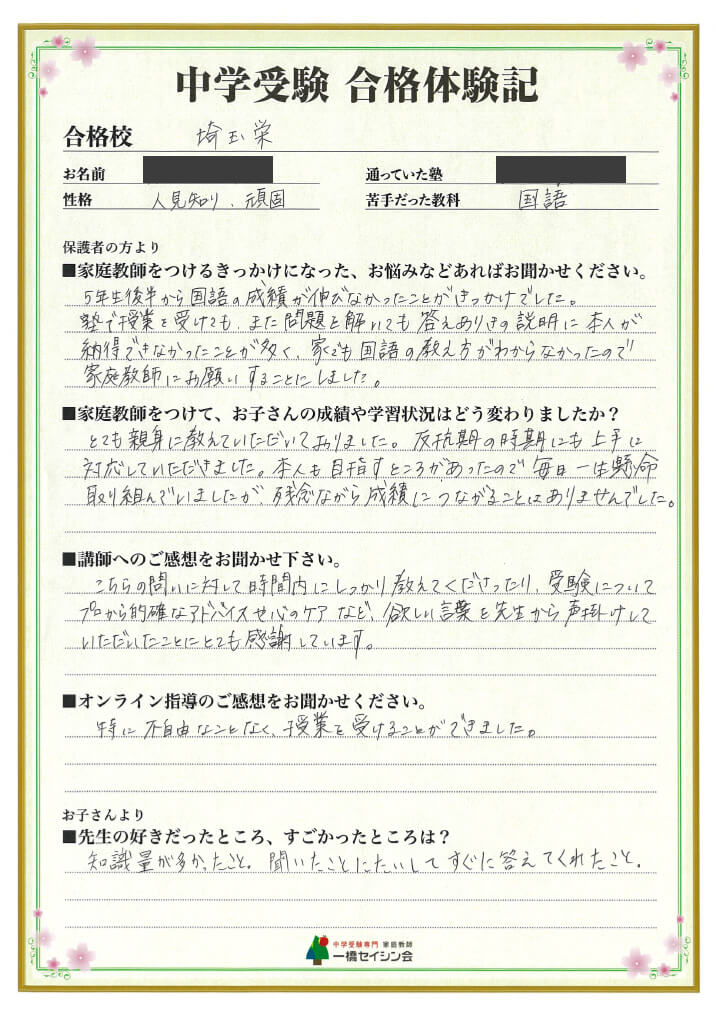 中学受験 合格体験記
合格校 埼玉栄
お名前 通っていた塾
性格 人見知り、頑固 苦手だった教科 国語
保護者の方より
■家庭教師をつけるきっかけになった、お悩みなどあればお聞かせください。
5年生後半から国語の成績が伸びなかったことがきっかけでした。
塾で授業を受けても、また問題を解いても答えありきの説明に本人が
納得できなかったことが多く、家でも国語の教え方がわからなかったので
家庭教師にお願いすることにしました。
■家庭教師をつけて、お子さんの成績や学習状況はどう変わりましたか？
とても親身に教えていただいておりました。反抗期の時期にも上手に
対応していただきました。本人も目指すところがあったので毎日一生懸命
取り組んでいましたが、残念ながら成績につながることはありませんでした。
■講師へのご感想をお聞かせ下さい。
こちらの問いに対して時間内にしっかり教えてくださったり、受験について
プロから的確なアドバイスや心のケアなど、欲しい言葉を先生から声掛けして
いただいたことにとても感謝しています。
■オンライン指導のご感想をお聞かせください。
特に不自由なことなく、授業を受けることができました。
お子さんより
■先生の好きだったところ、すごかったところは？
知識量が多かったこと。聞いたことにたいしてすぐに答えてくれたこと.
中学受験専門 家庭教師
一橋セイシン会